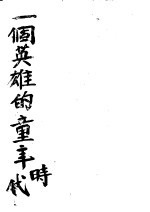 一個英雄的童年時代